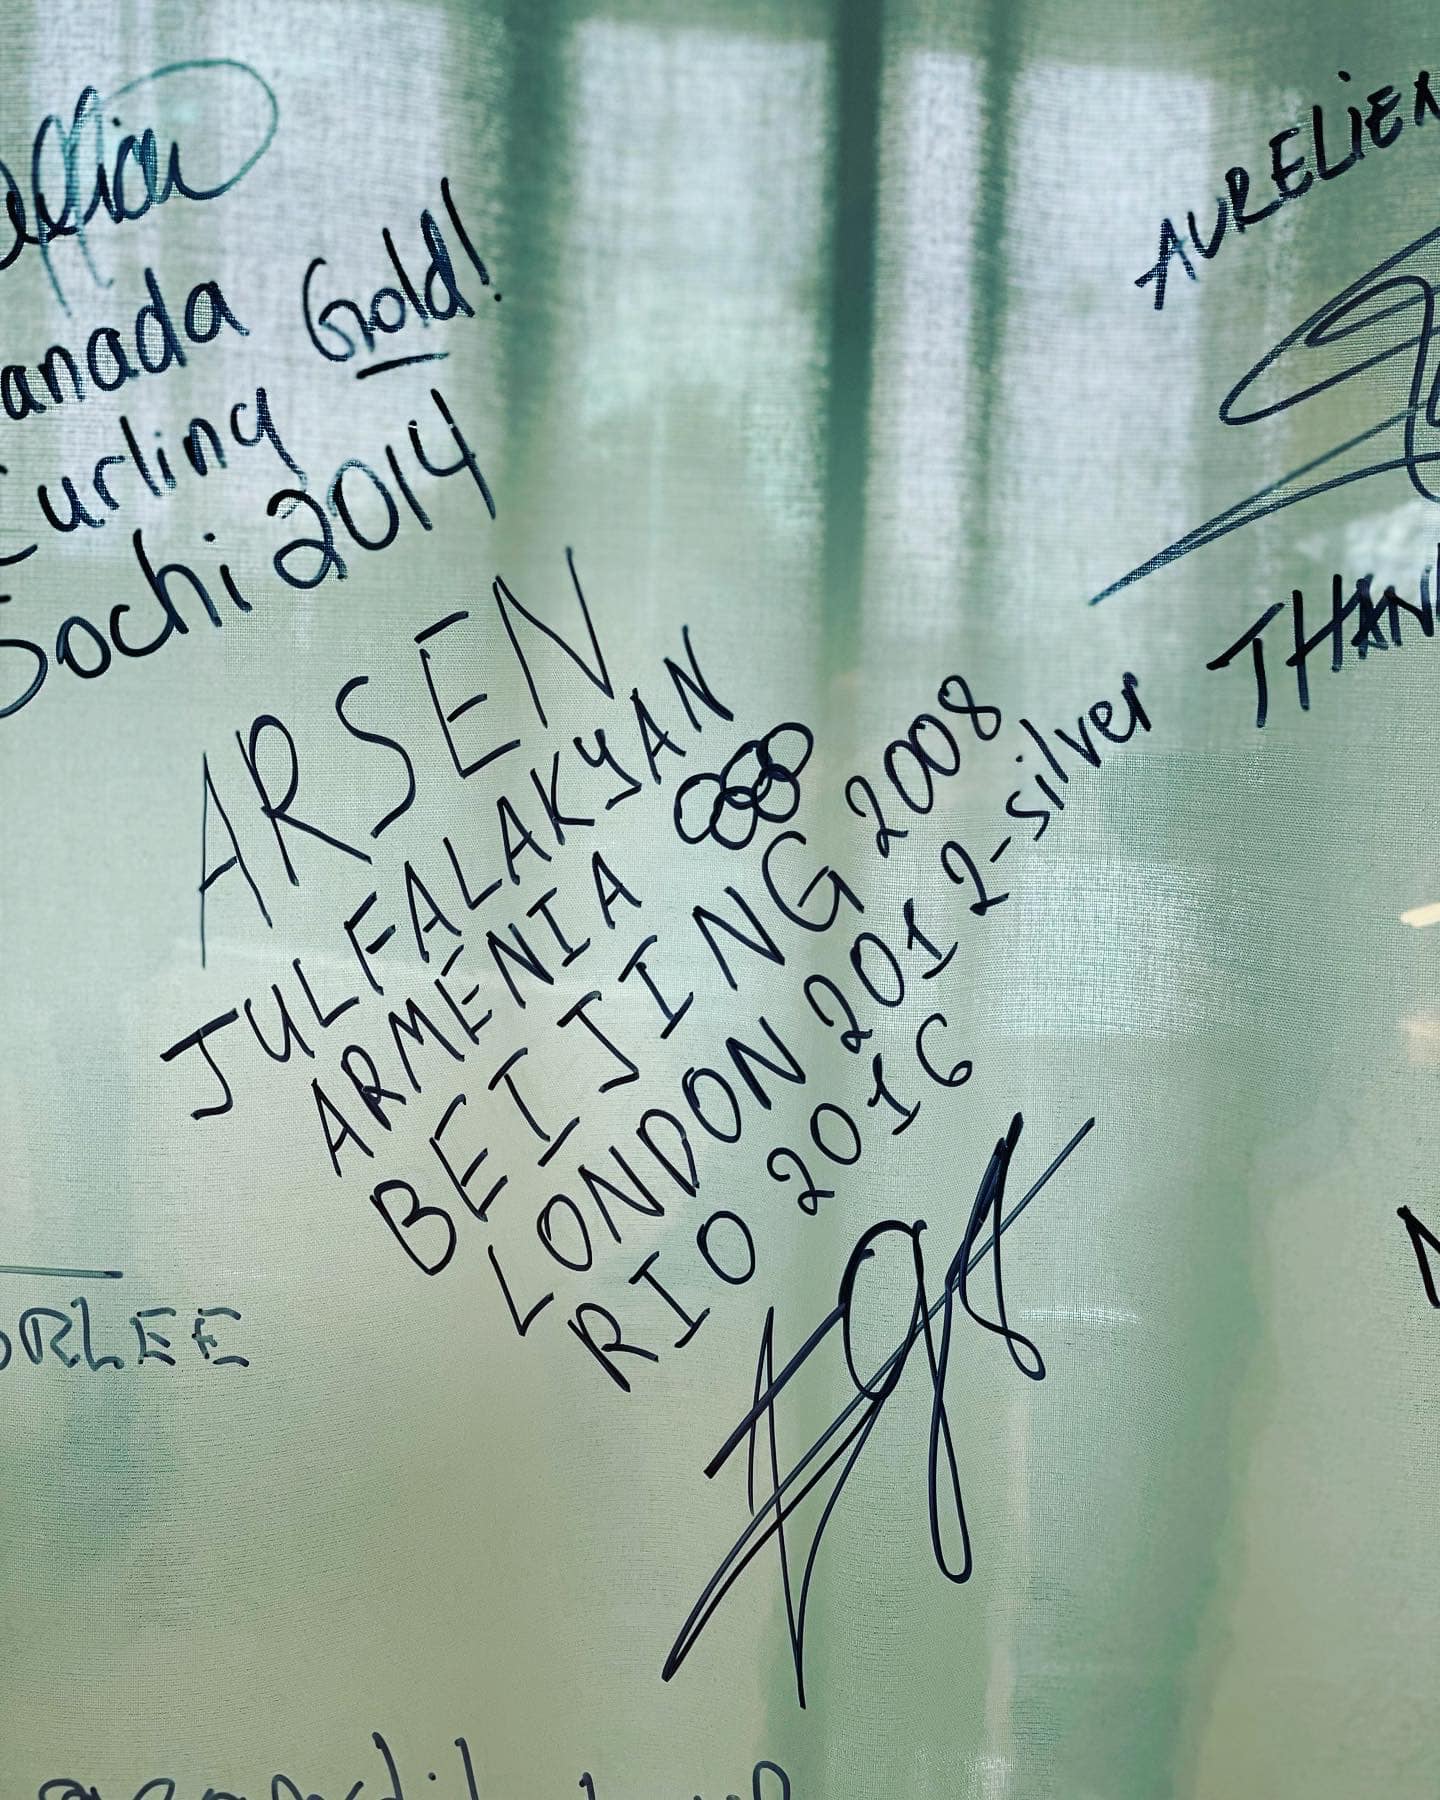 anada Gold!
urling
Sochi 2014
AURELIEN
THAN
ARSEN
JULFALAKYAN
ARMENIA
BEIJING 2008
LONDON 2012 2-silver
RIO 2016
ORLEE